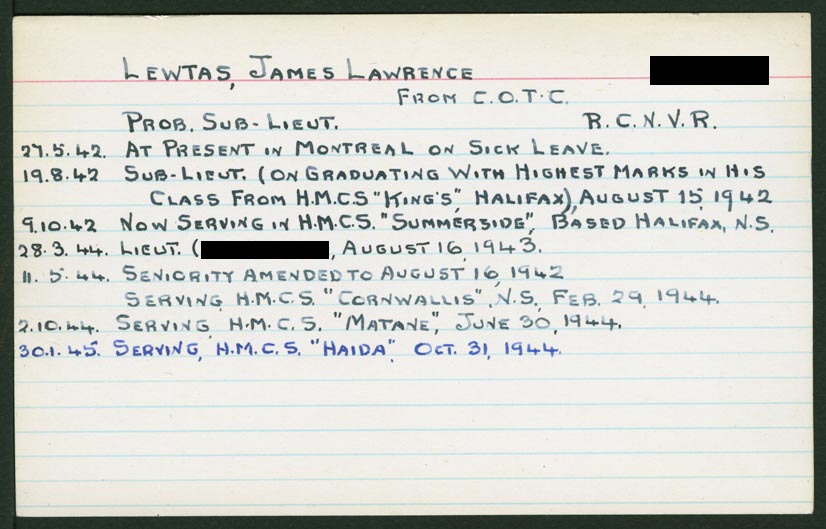 LEWTAS, JAMES LAWRENCE
FROM C.O.T.C.
PROB. SUB-LIEUT. R.C.N.V.R.
27.5.42. AT PRESENT IN MONTREAL ON SICK LEAVE.
19.8.42 SUB-LIEUT. (ON GRADUATING WITH HIGHEST MARKS IN HIS
CLASS FROM H.M.C.S "KING'S", HALIFAX), AUGUST 15, 1942
9.10.42 NOW SERVING IN H.M.C.S. "SUMMERSIDE", BASED HALIFAX, N.S.
28.3.44. LIEUT. ( , AUGUST 16, 1943.
11.5.44. SENIORITY AMENDED TO AUGUST 16, 1942
SERVING, H.M.C.S. "CORNWALLIS", N.S., FEB. 29, 1944.
2.10.44. SERVING, H.M.C.S. "MATANE", JUNE 30, 1944.
30.1.45. SERVING, H.M.C.S. "HAIDA", OCT. 31, 1944.